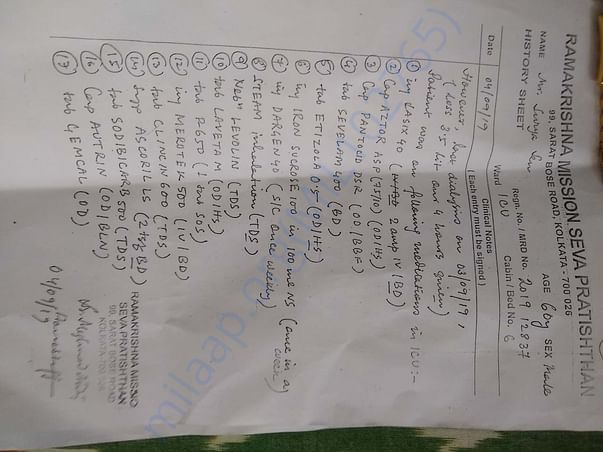 RAMAKRISHNA MISSION SEVA PRATISHTHAN
99, SARAT BOSE ROAD, KOLKATA - 700 026
HISTORY SHEET
NAME Mr. AGE 60y SEX Male
Regn. No. / MRD No. 2019 12837
Ward ICU Cabin / Bed No. 6
Date Clinical Notes
(Each entry must be signed)
04/09/19
However, last dialysis on 03/09/19,
(Loss 3.5 lit and 4 hours given)
Patient was on following medications in ICU:-
① inj LASIX 40 2 amp IV (BD)
② Cap AZTOR ASP (75/10) (OD/HS)
③ Cap PANTOCID DSR (OD/BBF)
④ tab SEVELAM 400 (BD)
⑤ tab ETIZOLA 0.5 (OD/HS)
⑥ inj IRON SUCROSE 100 in 100 ml NS (once in a week)
⑦ inj DARGEN 40 (S/C once weekly)
⑧ STEAM inhalation (TDS)
⑨ Neb LEVOLIN (TDS)
⑩ tab LAVETAM (OD/HS)
⑪ tab P650 (1 tab SOS)
⑫ inj MEROTEK 500 (IV/BD)
⑬ tab CLINCIN 600 (TDS)
⑭ Syp ASCORIL LS (2 tsf BD)
⑮ tab SODIBICARB 500 (TDS)
⑯ Cap AUTRIN (OD/BLN)
⑰ tab GEMCAL (OD)
RAMAKRISHNA MISSIO
SEVA PRATISHTHAN
99, SARAT BOSE ROAD
KOLKATA
04/09/19
milaap.org